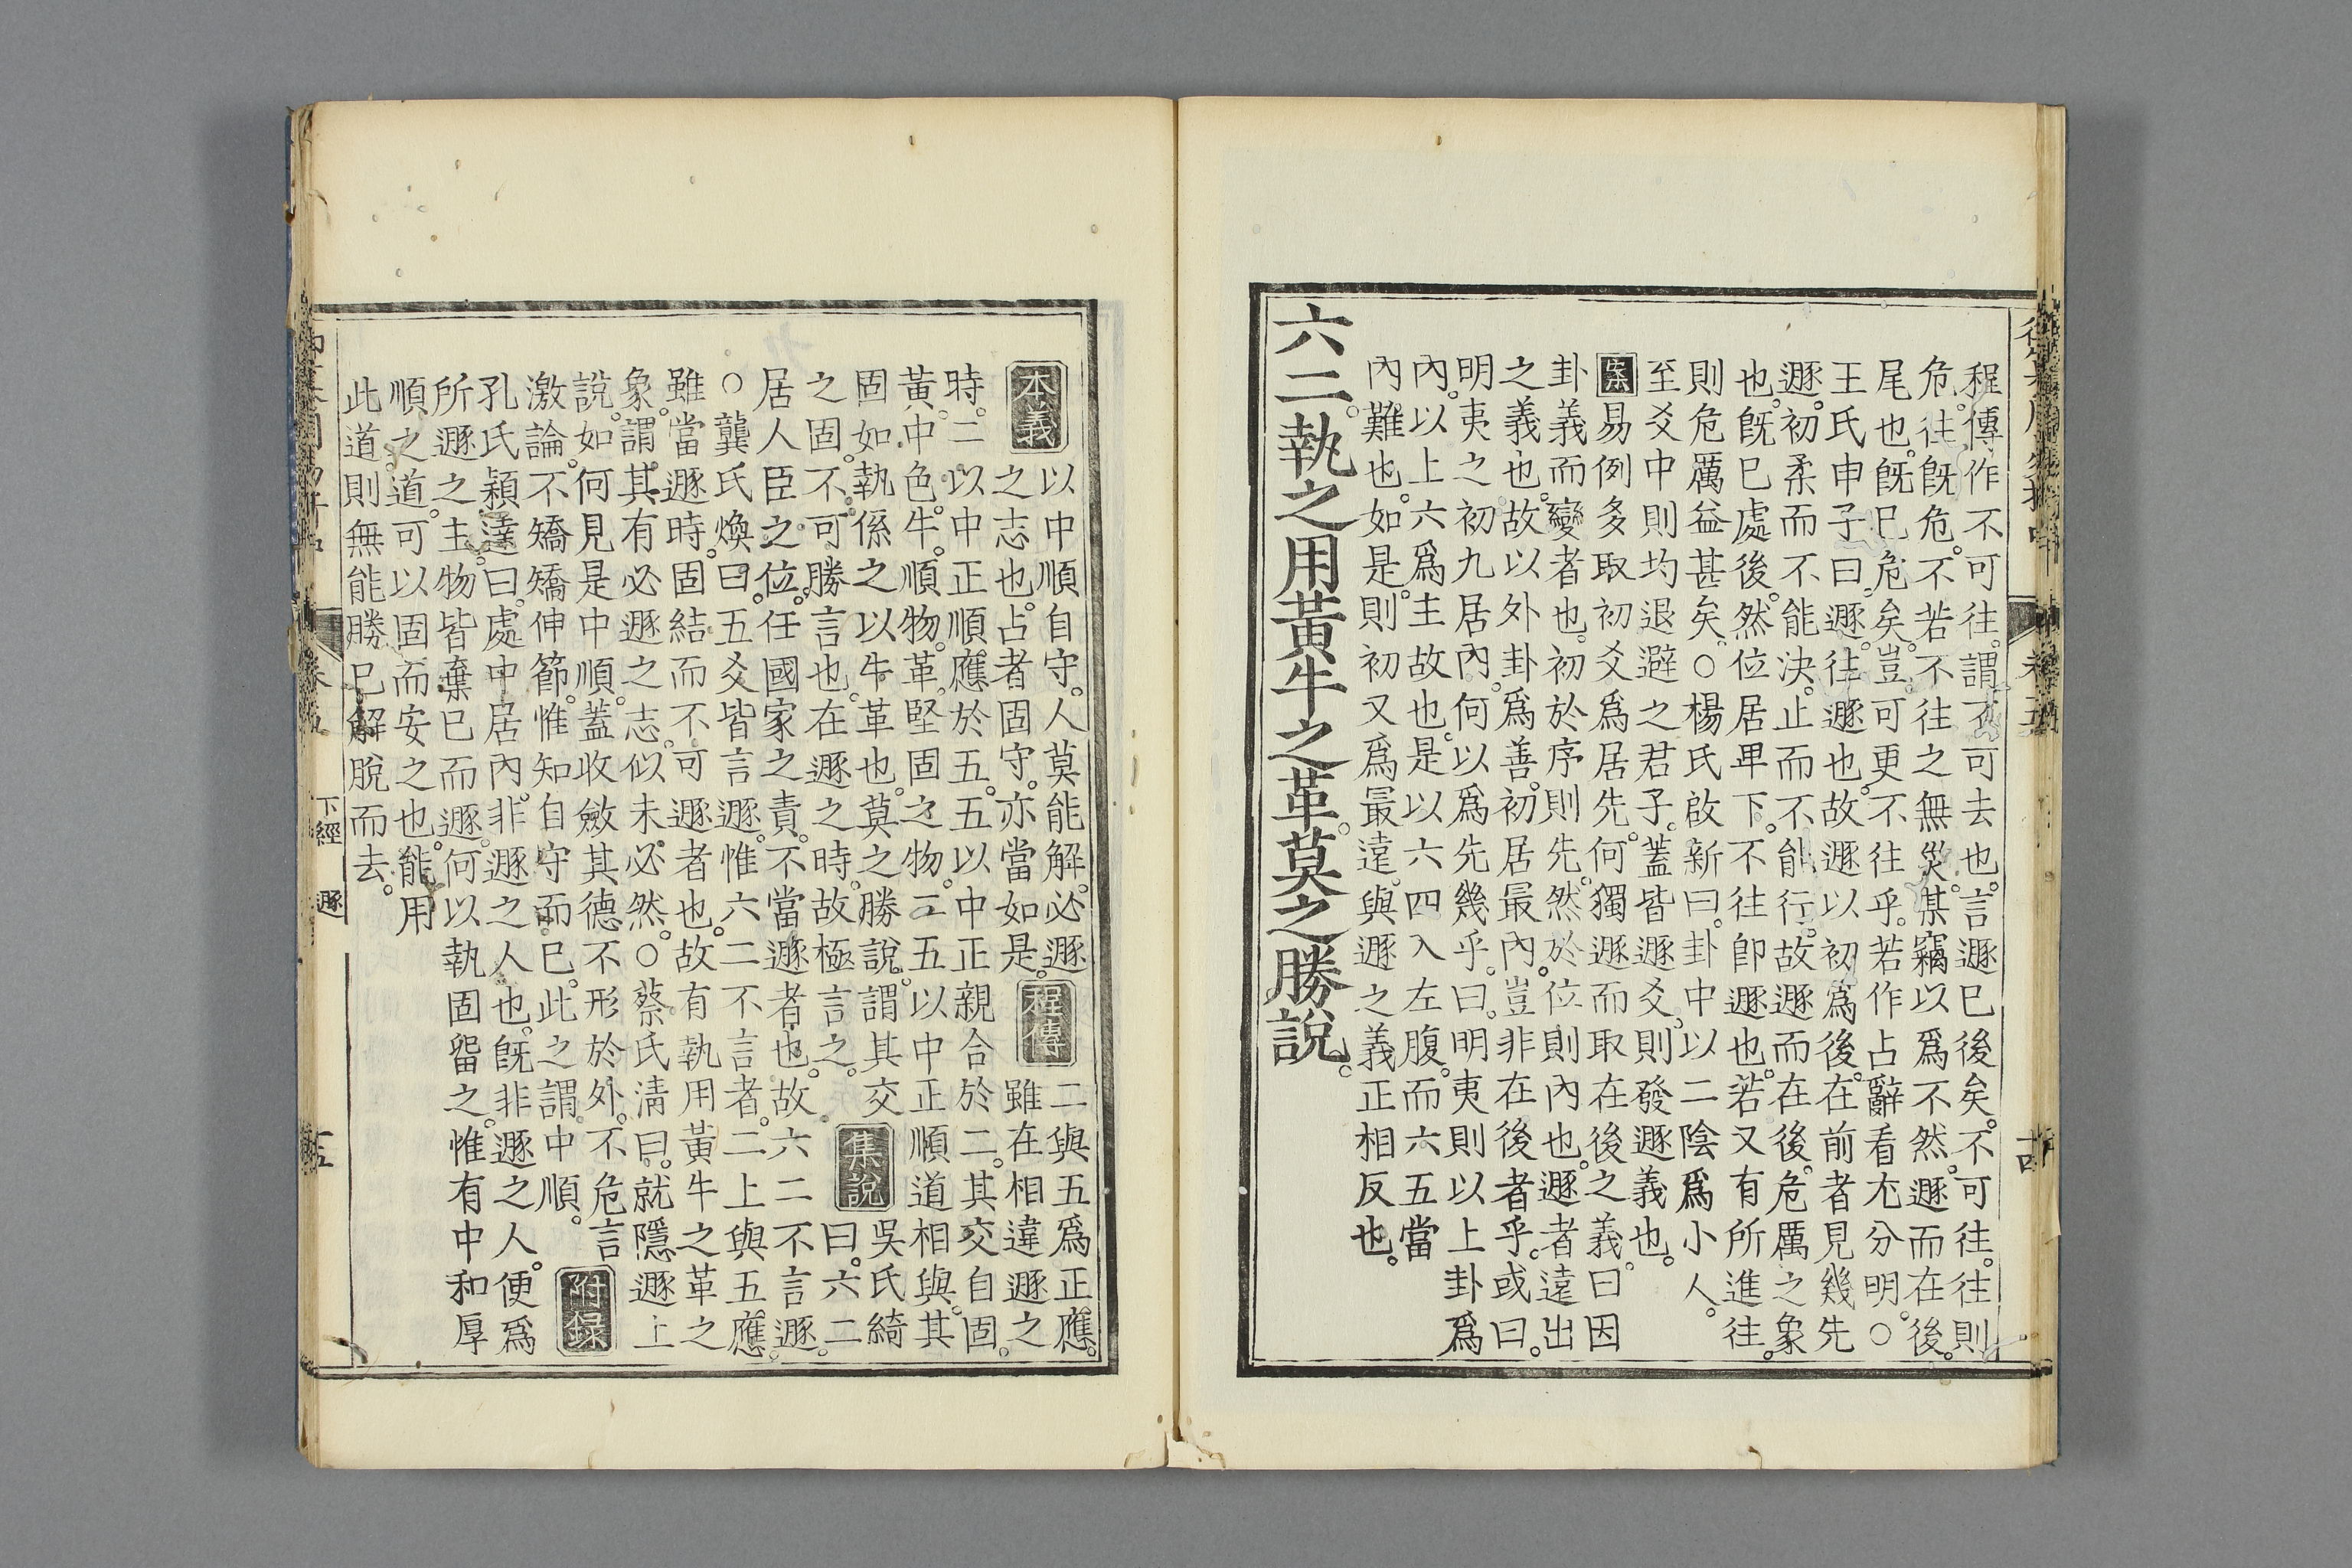 程傳作不可往。謂不可去也。言遯已後矣。不可往。往則
危。往旣危。不若不往之無災。某竊以爲不然。遯而在後。
尾也。旣已危矣。豈可更不往乎。若作占辭看尤分明。○
王氏申子曰。遯。往遯也。故遯以初爲後。在前者見幾先
遯。初柔而不能決。止而不能行。故遯而在後。危厲之象
也。旣已處後。然位居卑下。不往卽遯也。若又有所進往。
則危厲益甚矣。○楊氏啟新曰。卦中以二陰爲小人。
至爻中則均退避之君子。蓋皆遯爻。則發遯義也。
案易例多取初爻爲居先。何獨遯而取在後之義。曰因
卦義而變者也。初於序則先。然於位則內也。遯者遠出
之義也。故以外卦爲善。初居最內。豈非在後者乎。或曰。
明夷之初九居內。何以爲先幾乎。曰。明夷則以上卦爲
內。以上六爲主故也。是以六四入左腹。而六五當
內難也。如是。則初又爲最遠。與遯之義正相反也。
六二。執之用黃牛之革。莫之勝說。
本義
以中順自守。人莫能解。必遯
之志也。占者固守。亦當如是。
程傳
二與五爲正應。
雖在相違遯之
時。二以中正順應於五。五以中正親合於二。其交自固。
黃。中色。牛。順物。革。堅固之物。二五以中正順道相與。其
固如執係之以牛革也。莫之勝說。謂其交
之固。不可勝言也。在遯之時。故極言之。
集說
吳氏綺
曰。六二
居人臣之位。任國家之責。不當遯者也。故六二不言遯。
○龔氏煥曰。五爻皆言遯。惟六二不言者。二上與五應。
雖當遯時。固結而不可遯者也。故有執用黃牛之革之
象。謂其有必遯之志。似未必然。○蔡氏淸曰。就隱遯上
說。如何見是中順。蓋收斂其德。不形於外。不危言
激論。不矯矯伸節。惟知自守而已。此之謂中順。
附錄
孔氏穎達曰。處中居內。非遯之人也。旣非遯之人。便爲
所遯之主。物皆棄已而遯。何以執固留之。惟有中和厚
順之道。可以固而安之也。能用
此道。則無能勝已解脫而去。
下經 遯